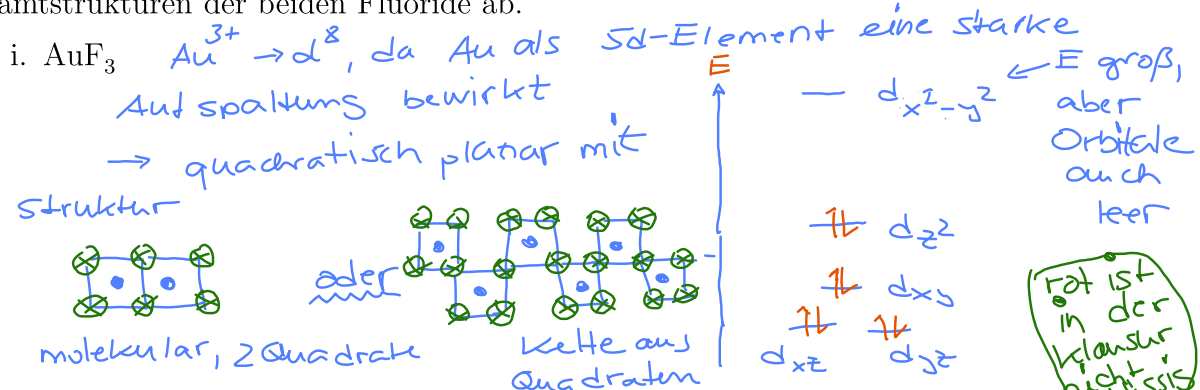 amtstrukturen der beiden Fluoride ab.
i. AuF₃ Au³⁺ → d⁸, da Au als 5d-Element eine starke
Aufspaltung bewirkt
→ quadratisch planar mit
Struktur
oder
molekular, 2 Quadrate
Kette aus
Quadraten
E
— d x²-y²
← E groß,
aber
Orbitale
auch
leer
d z²
d xy
d xz d yz
rot ist
in der
Klausur
nicht